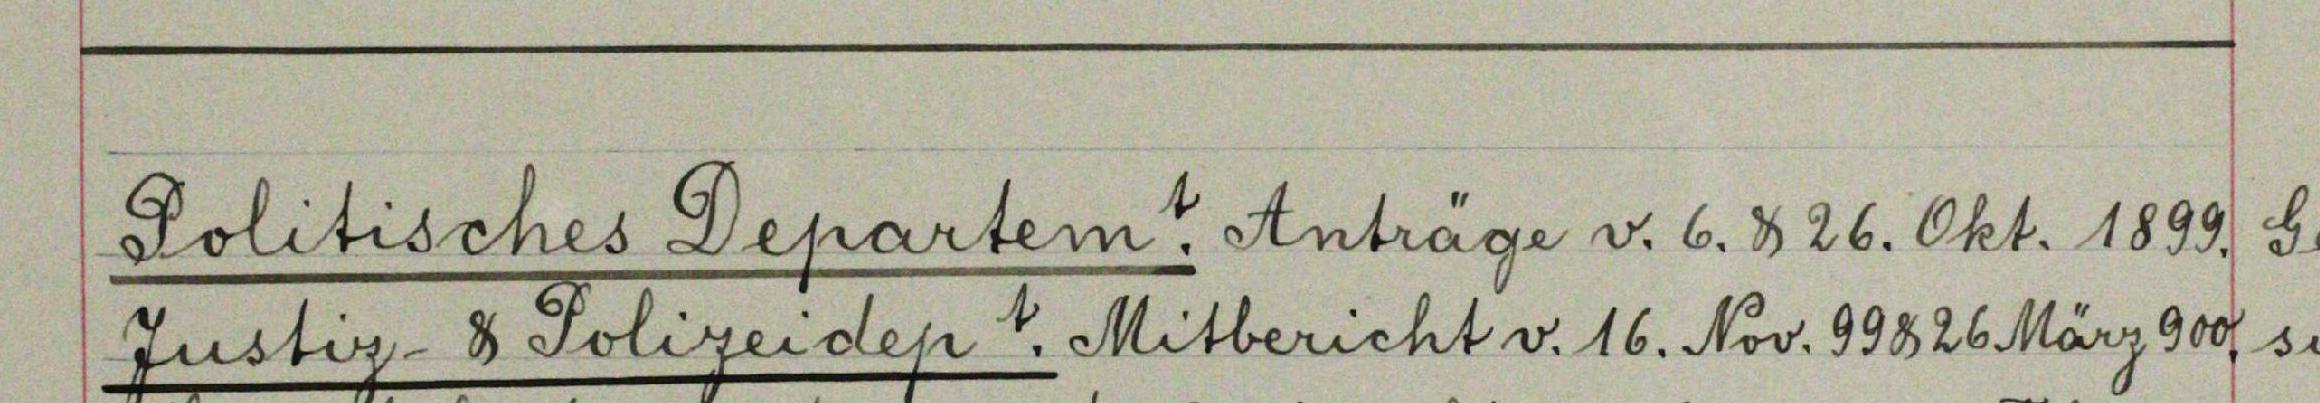 Politisches Departemt. Anträge v. 6. & 26. Okt. 1899.
Justiz- & Polizeidept. Mitbericht v. 16. Nov. 99 & 26 März 900.